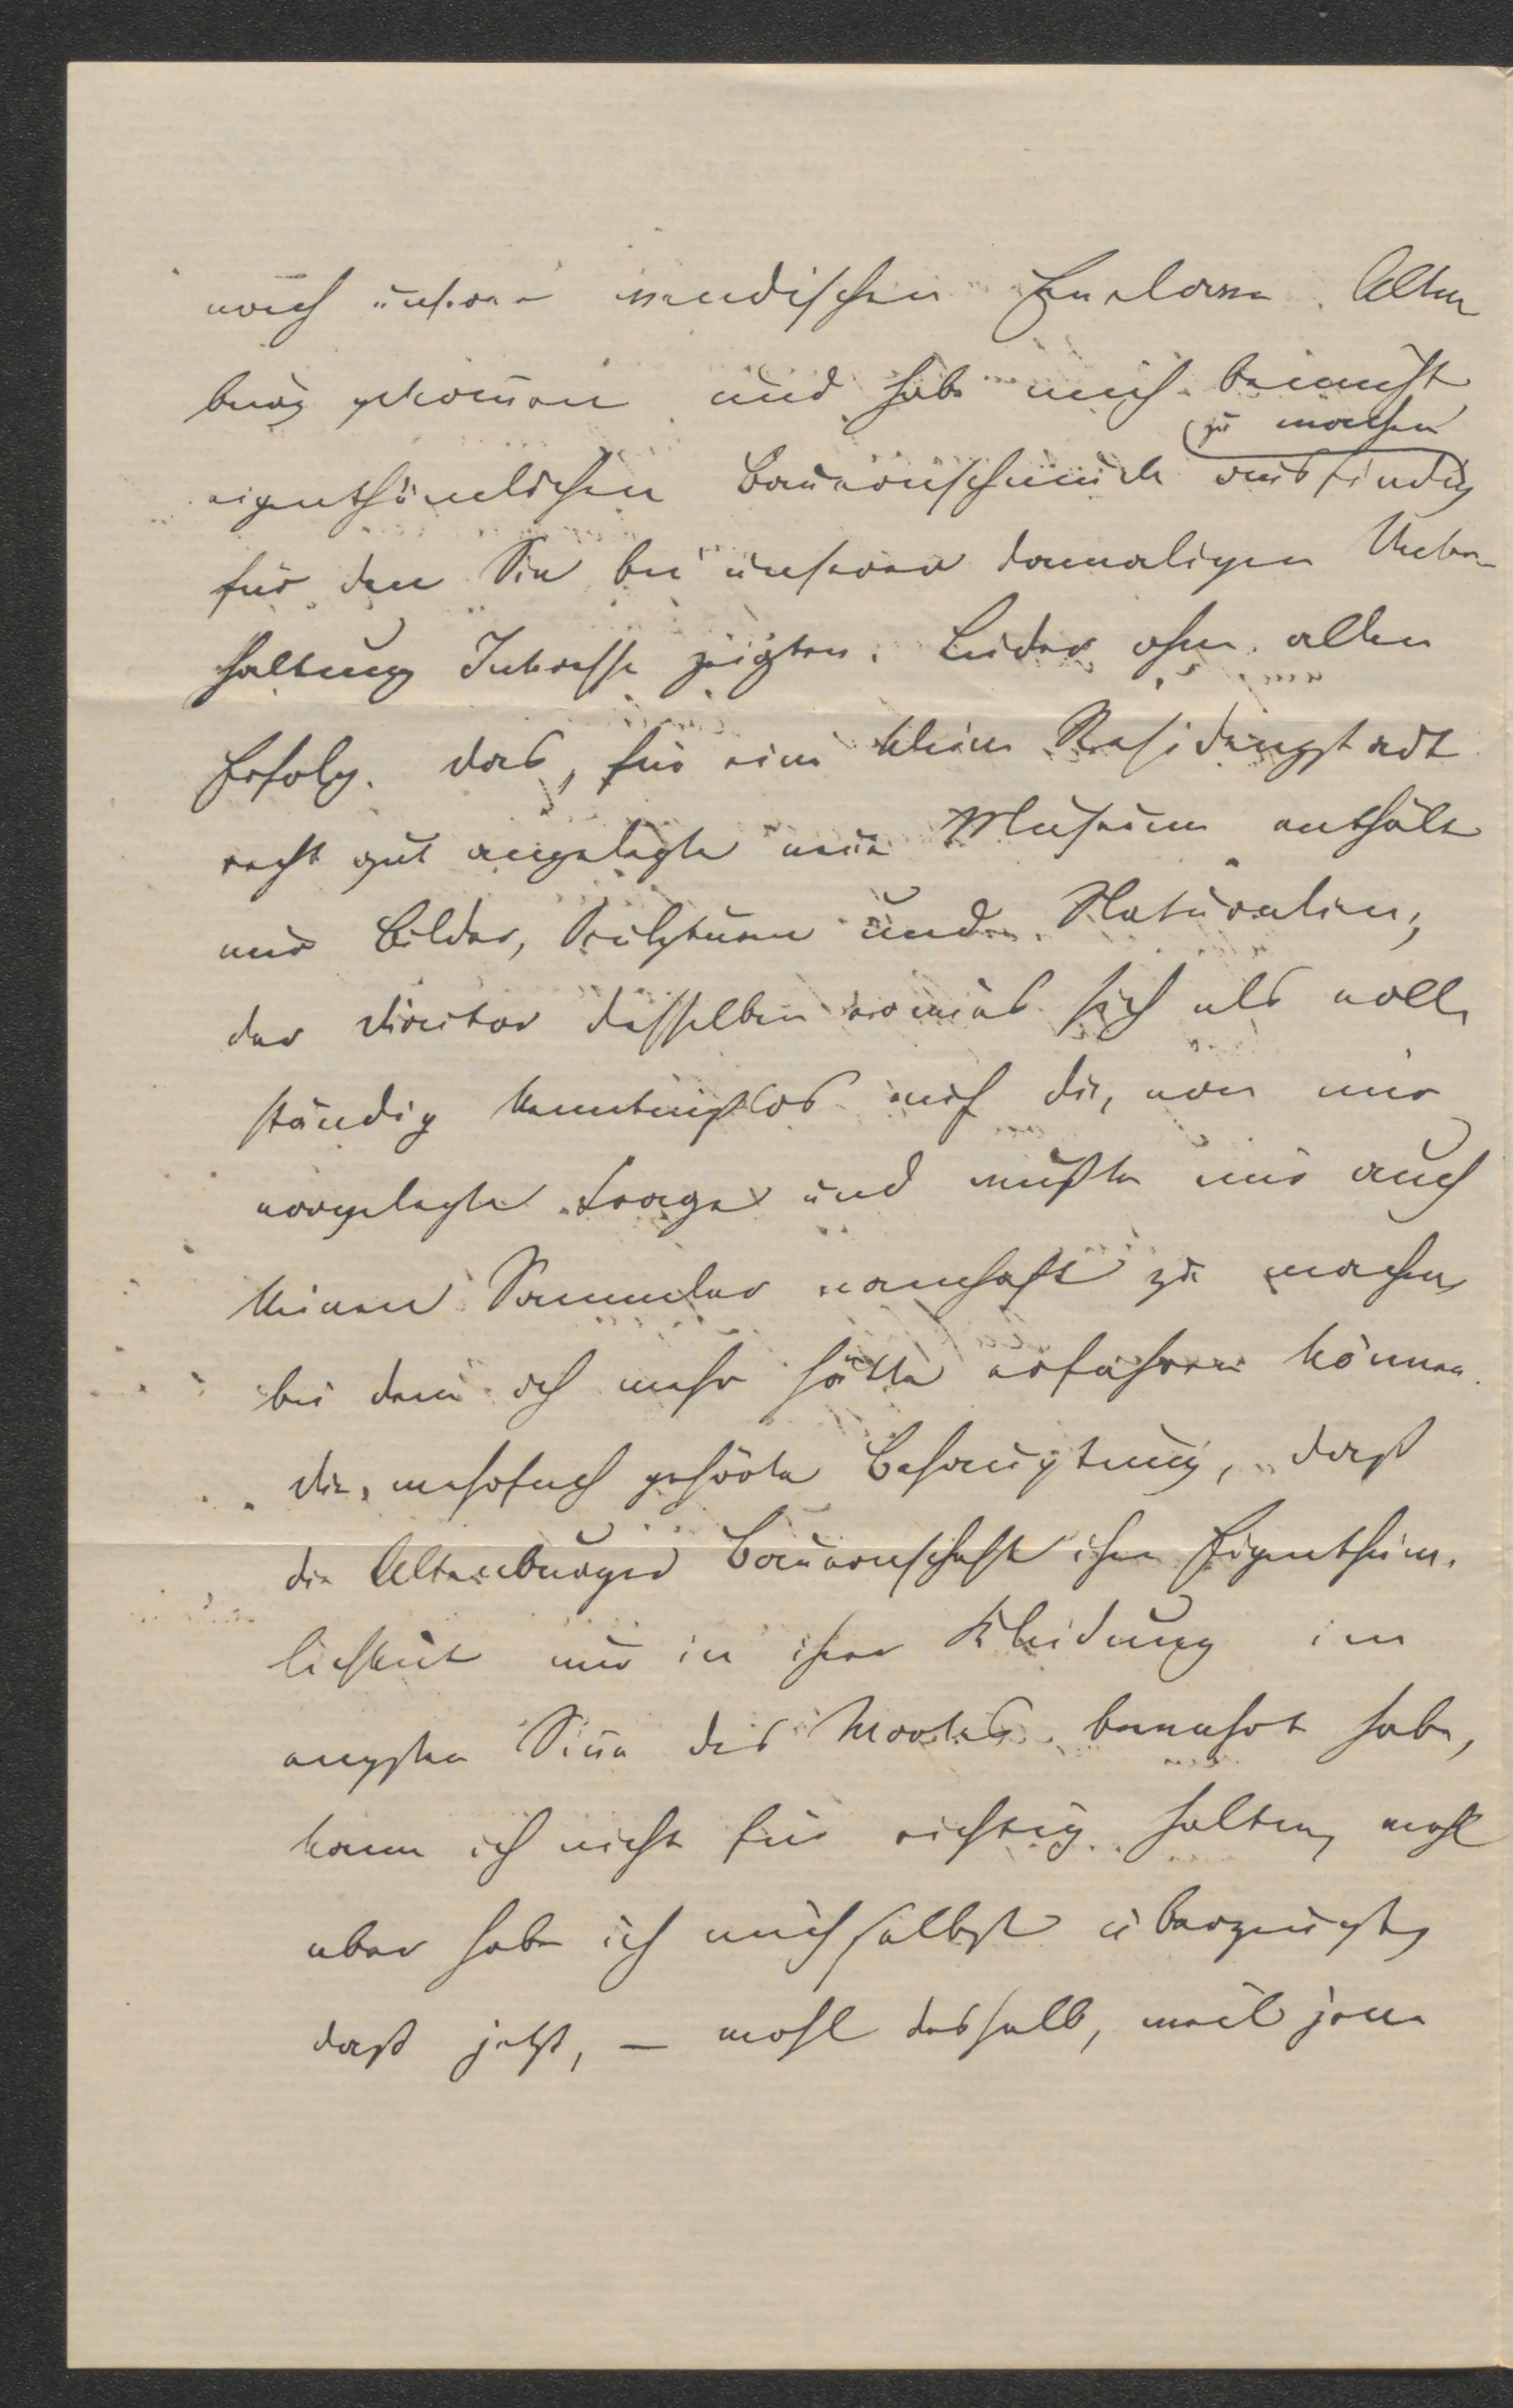 nach unserer wendischen Enclave Alten
burg gekommen und habe mich bemüht
zu machen
eigenthümlichen Bauernschmuck ausfindig
für den Sie bei unserer damaligen Unter-
haltung Interesse zeigten. Leider ohne allen
Erfolg. Das, für eine kleine Residenzstadt
recht gut angelegte neue Museum enthält
nur Bilder, Sculpturen und Naturalien;
der Director desselben erwies sich als voll
ständig kenntnißlos auf die, von mir
vorgelegte Frage und wußte mir auch
keinen Sammler namhaft zu machen,
bei dem ich mehr hätte erfahren können.
Die, mehrfach gehörte Behauptung, daß
die Altenburger Bauernschaft ihre Eigenthüm-
lichkeit nur in ihrer Kleidung im
engsten Sinne des Wortes bewahrt habe,
kann ich nicht für richtig halten, wohl
aber habe ich mich selbst überzeugt,
daß jetzt, — wohl deshalb, weil jene